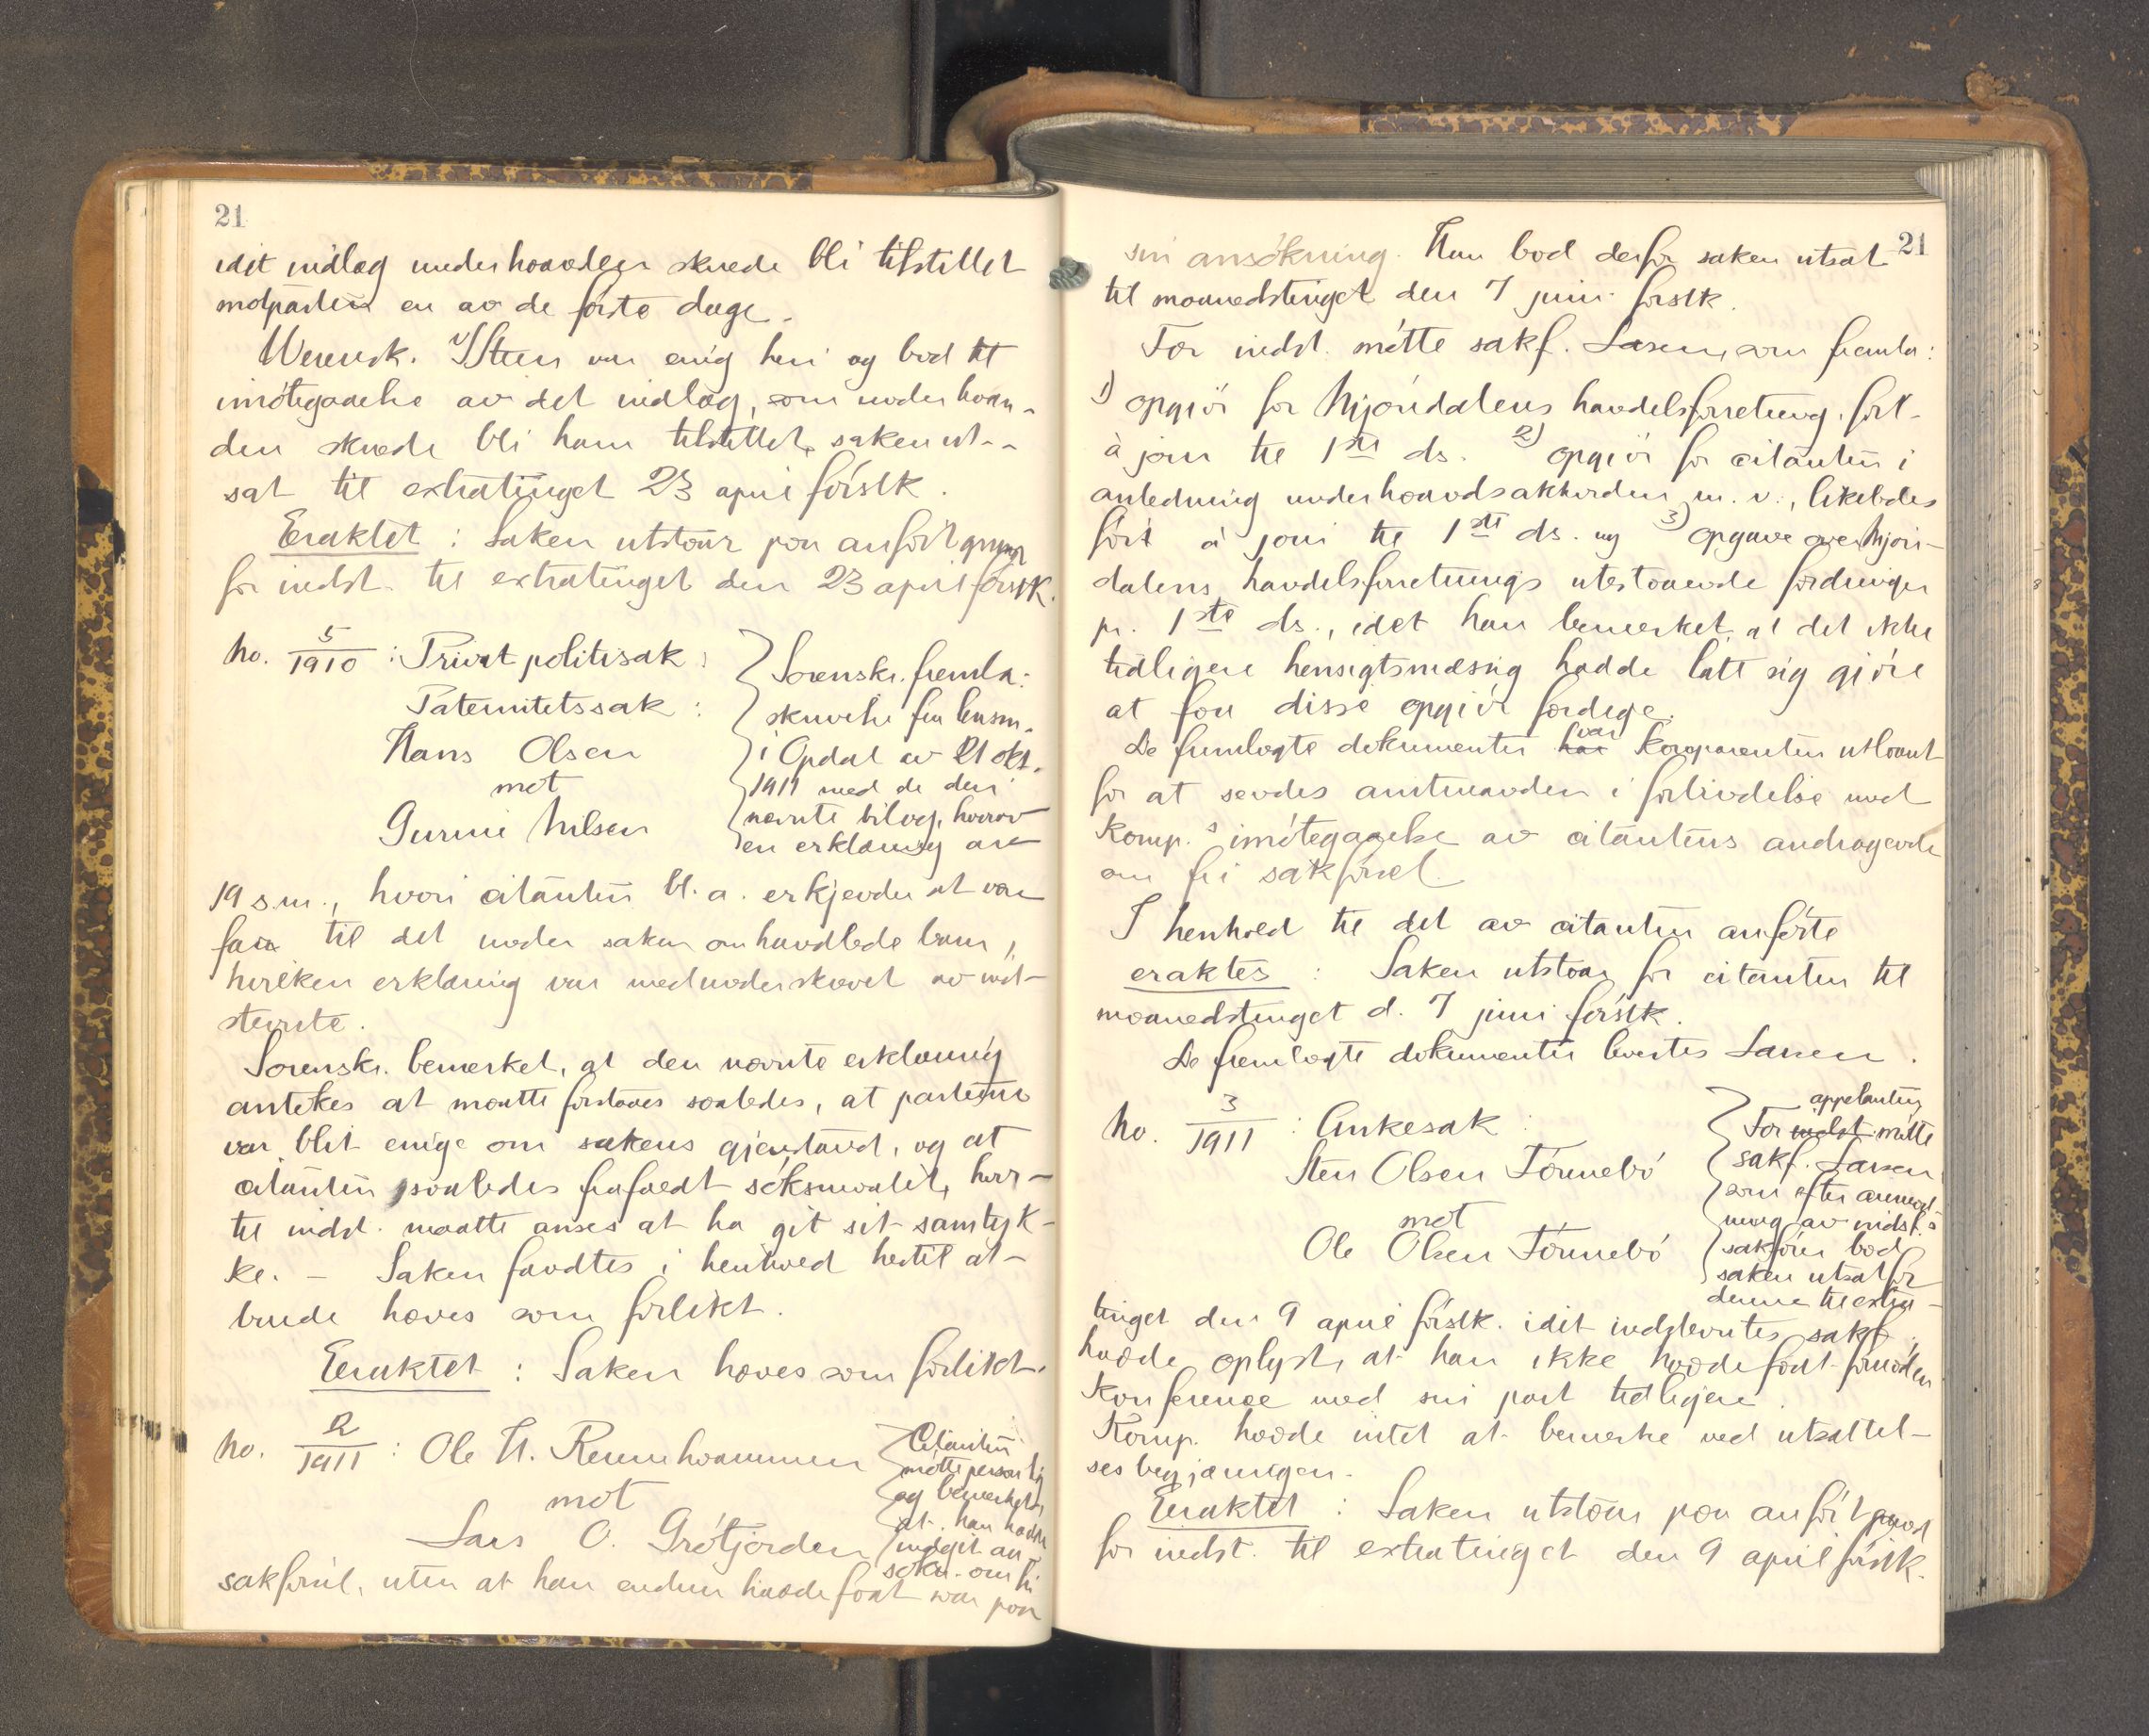 21
idet indlæg underhaanden skuede bli tilstillet
motparten en av de første dage.
Werensk. v/ Steen var enig heri og bad til
imøtegaaelse av det indlæg, som underhaan-
den skuede bli ham tilstillet, saken ut-
sat til extratinget 23 april førstk.
Eraktet : Saken utstaar paa anført grund
for indst. til extratinget den 23 april førstk.
No. 5/1910 : Privat politisak :
Paternitetssak :
Hans Olsen
mot
Gurine Nilsen
Sorenskr. fremla:
skrivelse fra lensm.
i Opdal av 21 okt.
1911 med de deri
nævnte bilag, hvorav
en erklæring av
19 s.m., hvori citanten bl. a. erkjender at være
far til det under saken omhandlede barn,
hvilken erklæring var medunderskrevet av ind-
stevnte.
Sorenskr. bemerket, at den nævnte erklæring
antokes at maatte forstaaes saaledes, at parterne
var blit enige om sakens gjenstand, og at
citanten saaledes frafaldt søksmaalet, hvor-
til indst. maatte anses at ha git sit samtyk-
ke. – Saken fandtes i henhold hertil at-
burde hæves som forlikt.
Eraktet : Saken hæves som forlikt.
No. 2/1911 : Ole H. Rennhvammen
mot
Lars O. Grøtjorden
Citanten
møtte personlig
og bemerket,
at han hadde
indgit an-
søkn. om fri
sakførsel, uten at han endnu hadde faat svar paa
21
sin ansøkning. Han bad derfor saken utsat
til maanedstinget den 7 juni førstk.
For indst. møtte sakf. Larsen, som fremla:
1) opgjør for Mjøndalens handelsforretning, ført-
à jour til 1ste ds. 2) opgjør for citanten i
anledning underhaandsakkorden m. v., likeledes
ført à jour til 1ste ds. og 3) opgave over Mjøn-
dalens handelsforretnings utestaaende fordringer
pr. 1ste ds., idet han bemerket, at det ikke
tidligere hensigtsmæssig hadde latt sig gjøre
at faa disse opgjør færdige.
De fremlagte dokumenter var komparenten utlaant
for at sendes amtmanden i forbindelse med
Komp.s imøtegaaelse av citantens andragende
om fri sakførsel.
I henhold til det av citanten anførte
eraktes : Saken utstaar for citanten til
maanedstinget d. 7 juni førstk.
De fremlagte dokumenter levertes Larsen.
No. 3/1911 : Ankesak :
Sten Olsen Tønnebø
mot
Ole Olsen Tønnebø
appelanten
For indst. møtte
sakf. Larsen
som efter anmod-
ning av indst.s
sakfører bad
saken utsat for
denne til extra-
tinget den 9 april førstk. idet indstevntes sakf.
hadde oplyst, at han ikke hadde faat fornøden
konference med sin part tidligere.
Komp. hadde intet at bemerke ved utsættel-
ses begjæringen.
Eraktet : Saken utstaar paa anført grund
for indst. til extratinget den 9 april førstk.